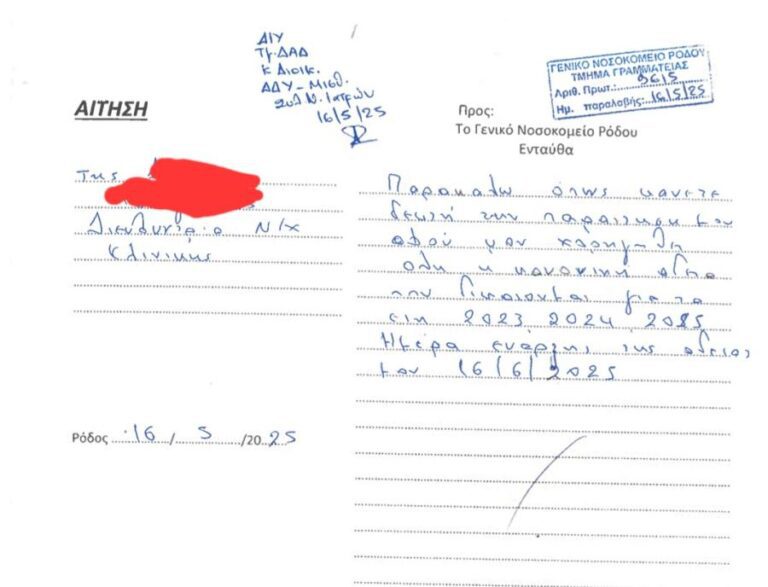 ΔΙΥ
Τμ. ΔΑΔ
Κ Διοικ.
ΔΔΥ - Μισθ.
Συλ. Ν. Ιατρών
16/5/25
ΓΕΝΙΚΟ ΝΟΣΟΚΟΜΕΙΟ ΡΟΔΟΥ
ΤΜΗΜΑ ΓΡΑΜΜΑΤΕΙΑΣ
Αριθ. Πρωτ.: 9615
Ημ. παραλαβής: 16/5/25
ΑΙΤΗΣΗ
Προς:
Το Γενικό Νοσοκομείο Ρόδου
Ενταύθα
Της
Διευθύντρια Ν/Χ
Κλινικής
Παρακαλώ όπως κάνετε
δεκτή την παραίτηση μου
αφού μου χορηγηθεί
όλη η κανονική άδεια
που δικαιούμαι για τα
έτη 2023 2024 2025
Ημέρα έναρξης της άδειας
μου 16/6/2025
Ρόδος 16 / 5 /2025